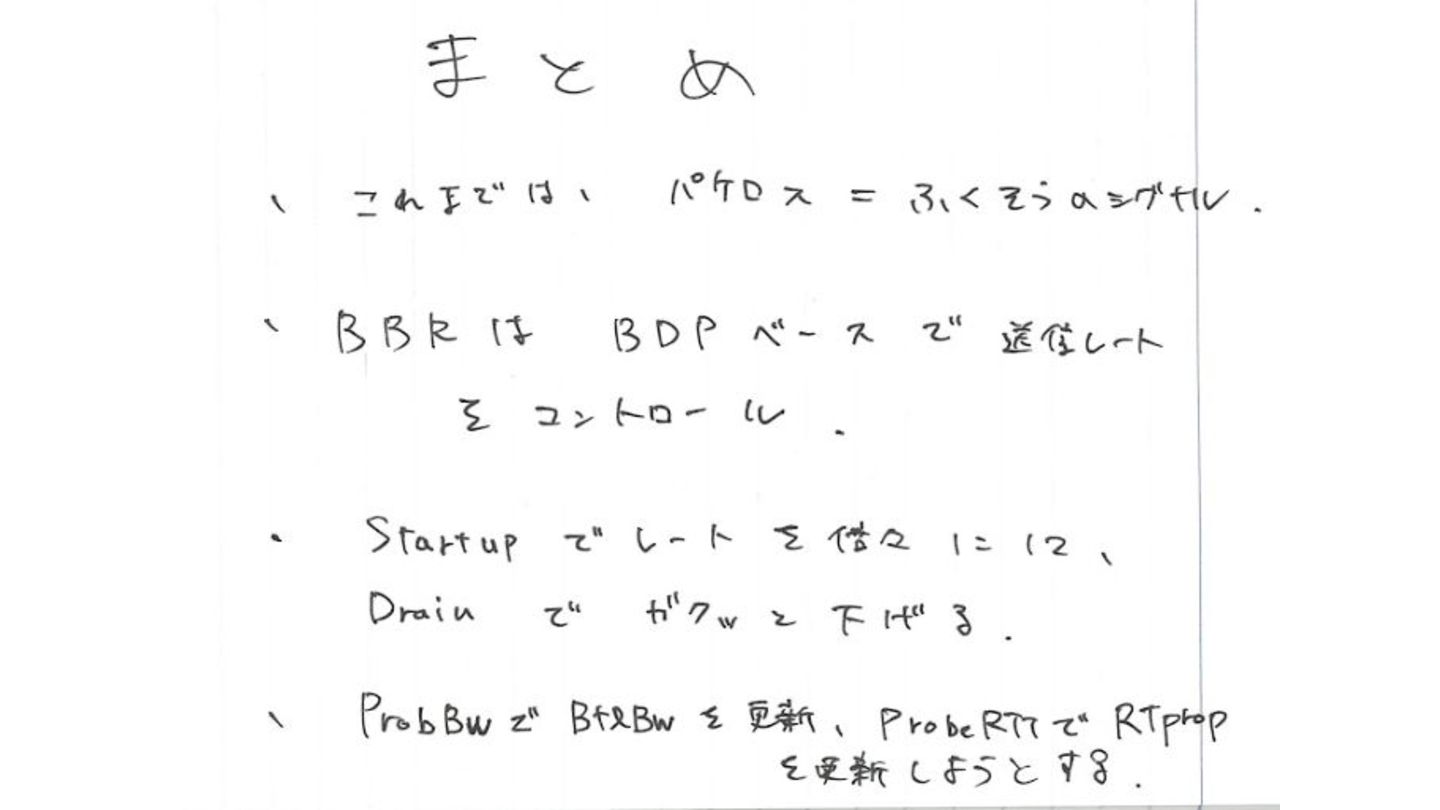 まとめ
・これまでは、パケロス = ふくそうのシグナル.
・BBRは BDPベースで送信レート
をコントロール.
・Startupでレートを倍々にして、
Drainでガクッと下げる.
・ProbBwでBtlBwを更新、ProbeRTTでRTprop
を更新しようとする.